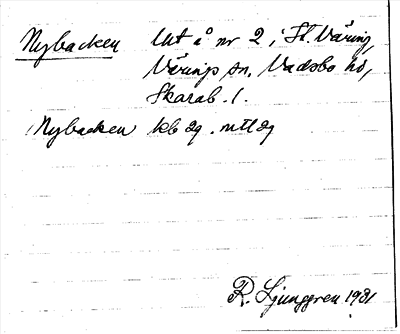 Nybacken Utt å nr 2 i St. Väring,
Värings sn. Vadsbo hd,
Skarab. l.
Nybacken kb dg. mtl dg
R. Ljunggren 1931